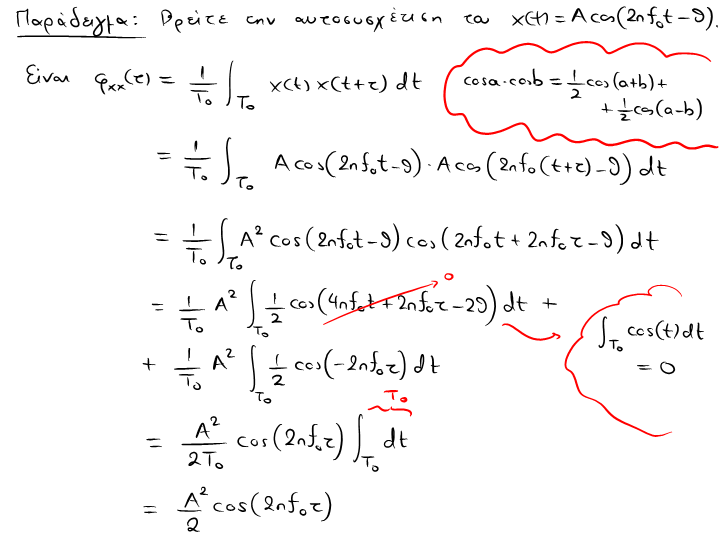 Παράδειγμα: Βρείτε την αυτοσυσχέτιση του x(t) = A cos(2πf₀t − θ).
Είναι φₓₓ(τ) = 1/T₀ ∫_T₀ x(t) x(t+τ) dt
cosa·cosb = 1/2 cos(a+b) +
+ 1/2 cos(a−b)
= 1/T₀ ∫_T₀ A cos(2πf₀t − θ) · A cos(2πf₀(t+τ) − θ) dt
= 1/T₀ ∫_T₀ A² cos(2πf₀t − θ) cos(2πf₀t + 2πf₀τ − θ) dt
= 1/T₀ A² ∫_T₀ 1/2 cos(4πf₀t + 2πf₀τ − 2θ) dt +
0
∫_T₀ cos(t) dt
= 0
+ 1/T₀ A² ∫_T₀ 1/2 cos(−2πf₀τ) dt
T₀
= A²/2T₀ cos(2πf₀τ) ∫_T₀ dt
= A²/2 cos(2πf₀τ)